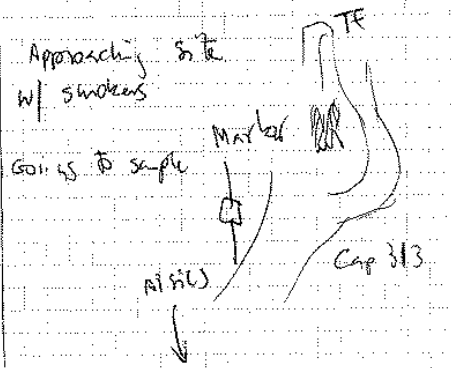 TF
Approaching site
w/ smokers
Marker
Going to sample
Cap 313